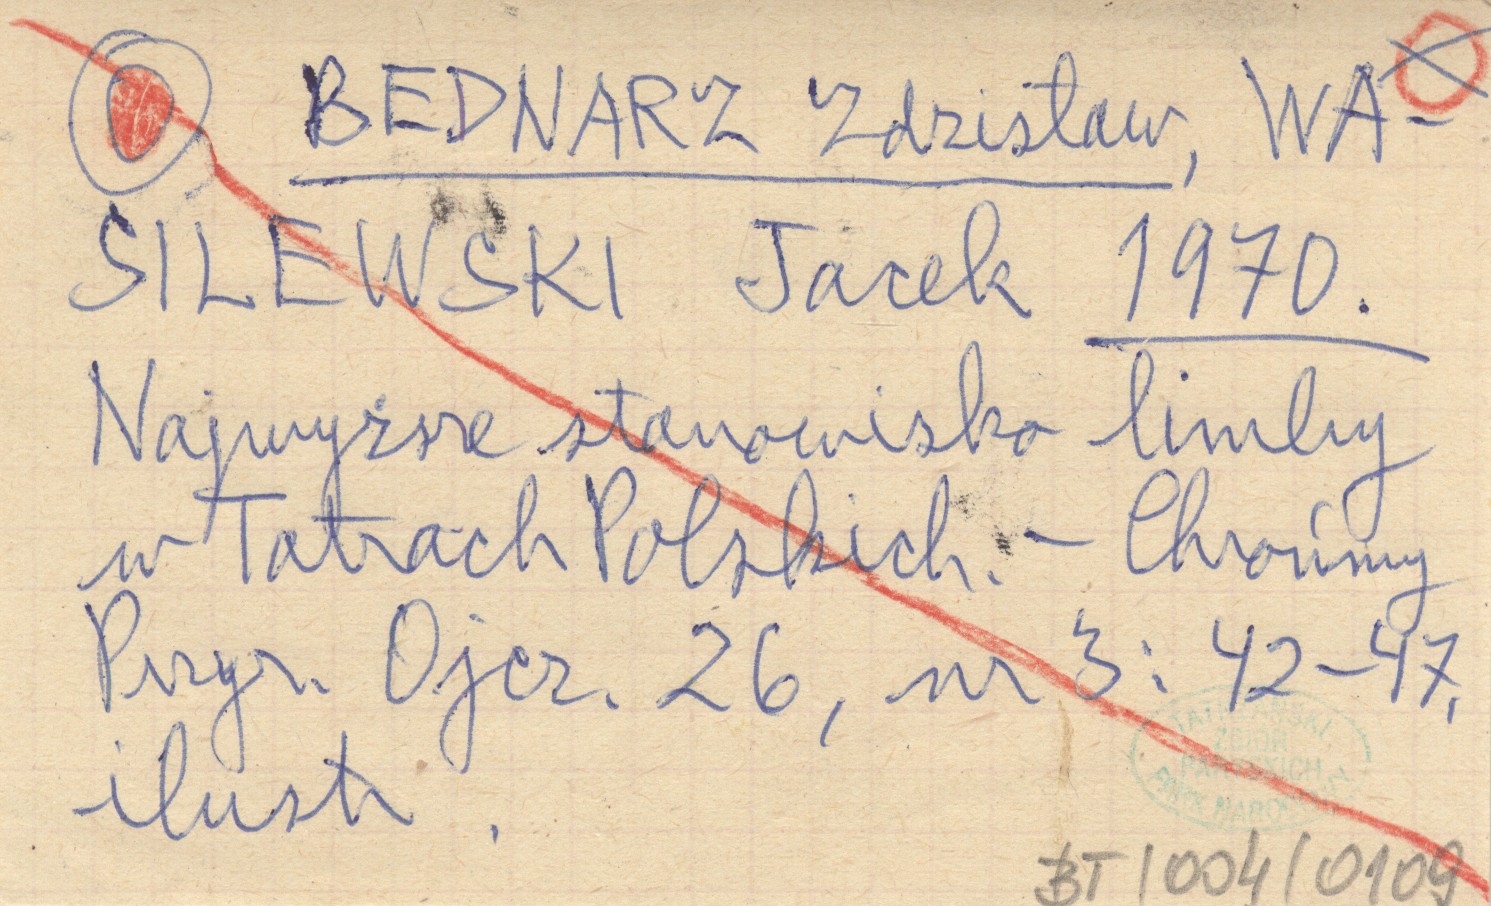 BEDNARZ Zdzisław, WA-
SILEWSKI Jacek 1970.
Najwyższe stanowisko limby
w Tatrach Polskich. - Chrońmy
Przyr. Ojcz. 26, nr 3: 42-47,
ilustr.
TATRZAŃSKI
ZBIÓR
PARYSKICH
PARK NARODOWY
BT/004/0109